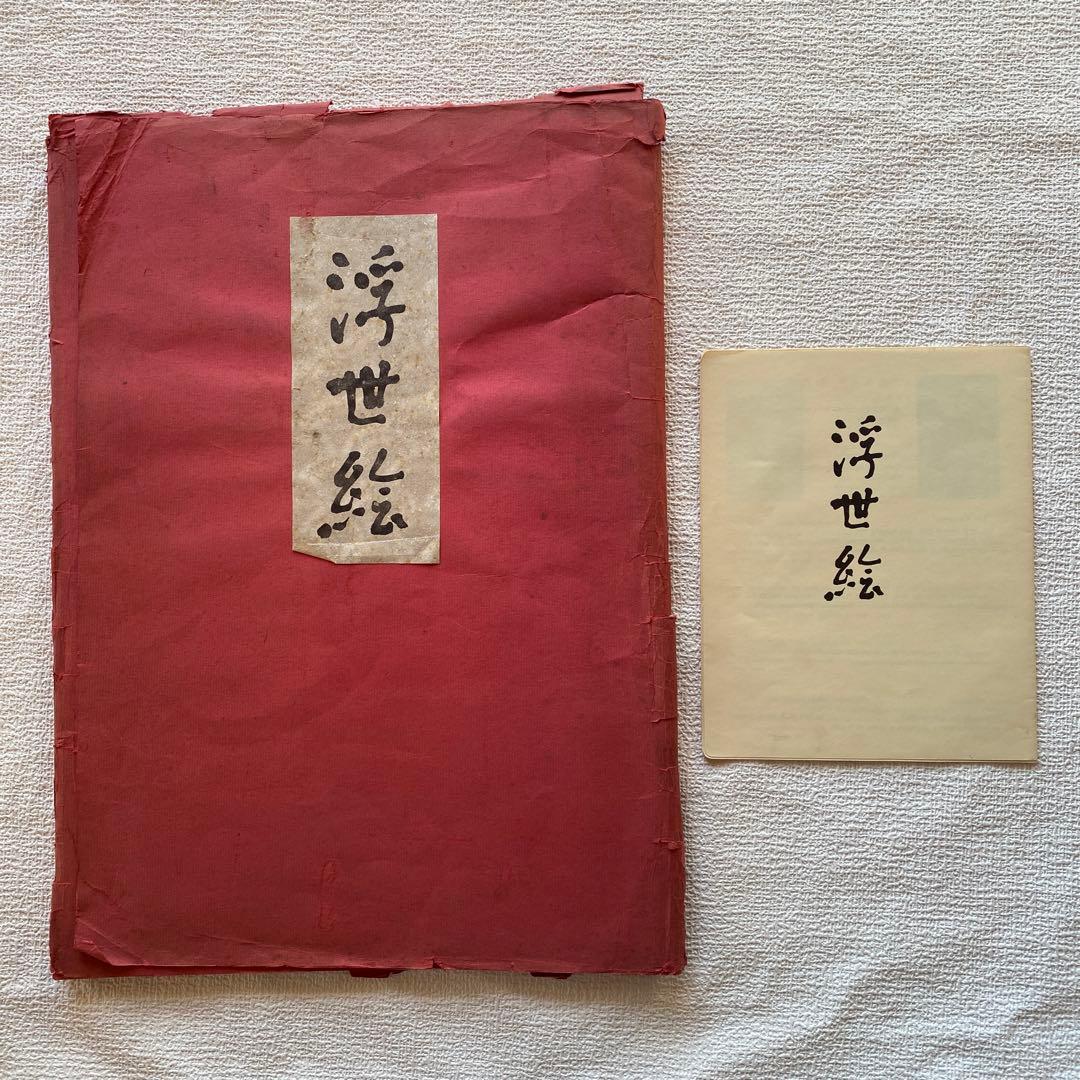 浮世絵
浮世絵